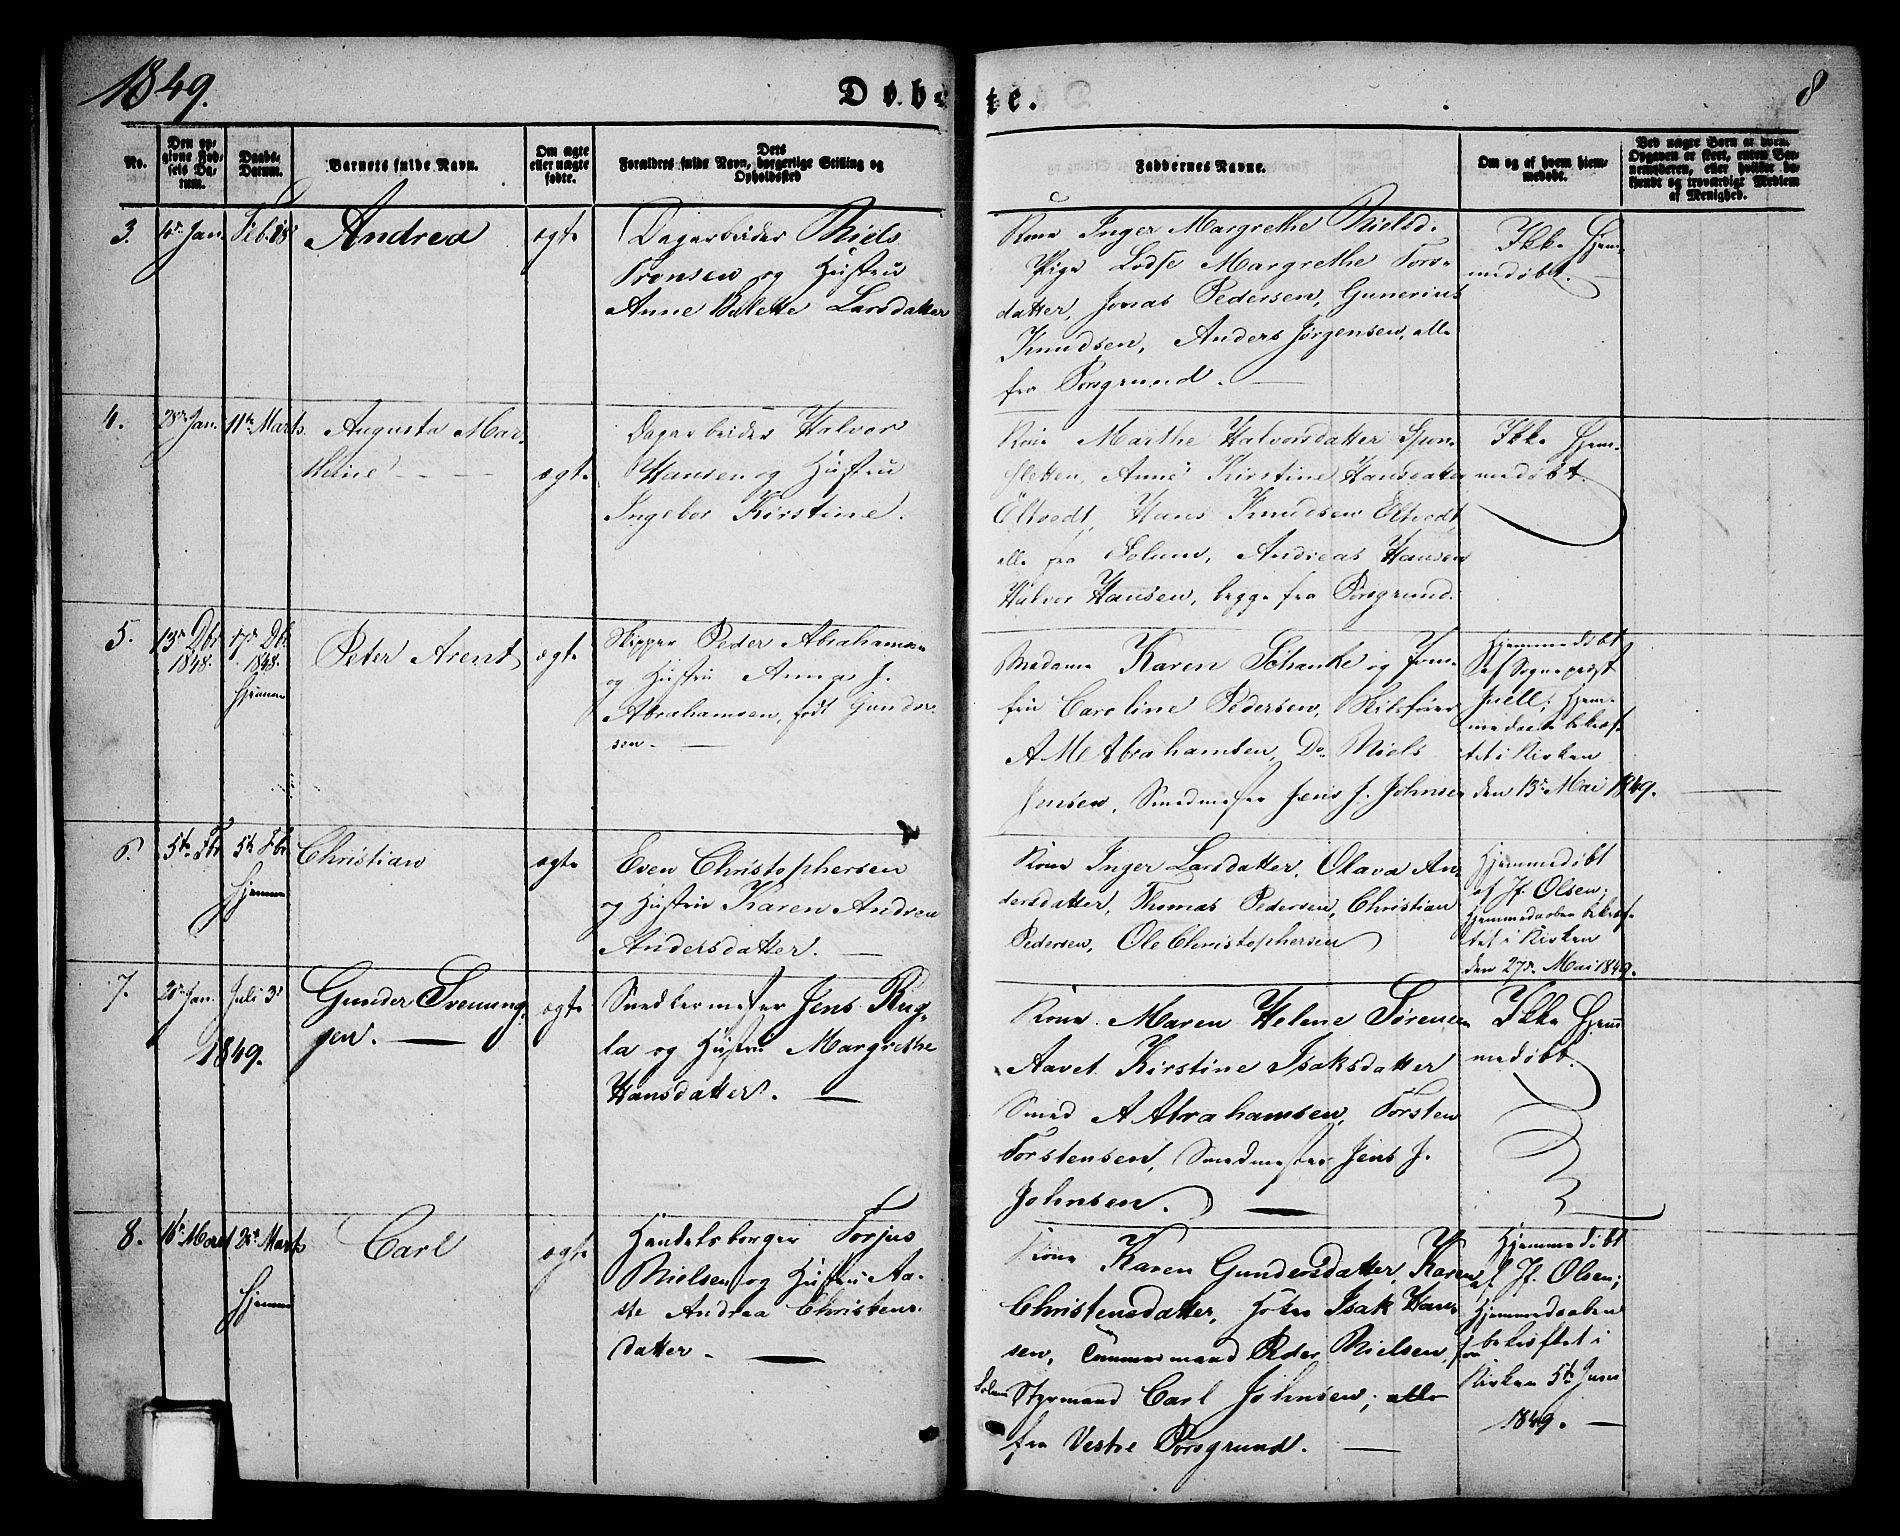 1849.
Døbte.
8
No.
Den opgivne Fødsels Datum.
Daabs-Datum.
Barnets fulde Navn.
Om ægte eller uægte fødte.
Dets Forældres fulde Navn, borgerlige Stilling og Opholdssted
Faddernes Navne.
Om og af hvem hjemmedøbt.
Ved uægte Børn at hvem Opgaven er skeet, enten Barnemoderen, eller hvilket bekjendt og troværdigt Medlem af Menighed.
3.
10de Jan.
Feb. 18
Andrea
ægte
Dagarbeider Niels
Tronsen og Hustru
Anne Larsdatter
Kone Inger Margrethe Nielsd.
Pige Margrethe Tors-
datter, Jonas Pedersen, Gunerius
Knudsen, Anders Jørgensen, alle
fra Porsgrund.
Ikke Hjem-
medøbt.
4.
28de Jan.
11te Marts
Augusta Mar-
thine
ægte
Dagarbeider Halvor
Hansen og Hustru
Ingebor Kirstine.
Kone Marthe Halvorsdatter Spon-
sletten, Anne Kirstine Hansdatter
Eltvedt, Hans Knudsen Eltvedt
alle fra Solum, Andreas Hansen
Halvor Hansen, begge fra Porsgrund.
Ikke Hjem-
medøbt.
5.
13de Dbr
1848.
17de Dbr
1848.
hjemme
Peter Arent
ægte
Skipper Peder Abrahamsen
og Hustru Anna J.
Abrahamsen, født Gunder-
sen.
Madame Karen Schanke og Jom-
fru Caroline Pedersen, Skibsfører
A M Abrahamsen, Do Niels
Jensen, Smedmester Jens J. Johnsen
Hjemmedøbt
af Sogneprest
Juell; Hjem-
medaaben bekræf-
tet i Kirken
den 13de Mai 1849.
6.
5te Fbr
5te Fbr
hjemme
Christian
ægte
Even Christophersen
og Hustru Karen Andrea
Andersdatter.
Kone Inger Larsdatter, Olava An-
dersdatter, Thomas Pedersen, Christian
Pedersen, Ole Christophersen
Hjemmedøbt
af Jf. Olsen;
Hjemmedaaben bekræf-
tet i Kirken
den 27de Mai 1849.
7.
20de Jan.
Juli 3
1849.
Gunder Svenung-
sen.
ægte
Snedkermester Jens Rug-
la og Hustru Margrethe
Hansdatter.
Kone Maren Helene Sørensen
Aavet Kirstine Isaksdatter
Smed A Abrahamsen, Torsten
Torstensen, Smedmester Jens J.
Johnsen.
Ikke Hjem
medøbt.
8.
16de Marts
20de Marts
hjemme
Carl
ægte
Handelsborger Torjus
Nielsen og Hustru Aa-
ste Andrea Christens-
datter.
Kone Karen Gundersdatter, Karen
Christensdatter, Isak Han-
sen, Tømmermand Peder Nielsen fra
Solum Styrmand Carl Johnsen; alle
fra Vestre Porsgrund.
Hjemmedøbt
af Jf. Olsen;
Hjemmedaaben
bekræftet i
Kirken 5te Juni
1849.